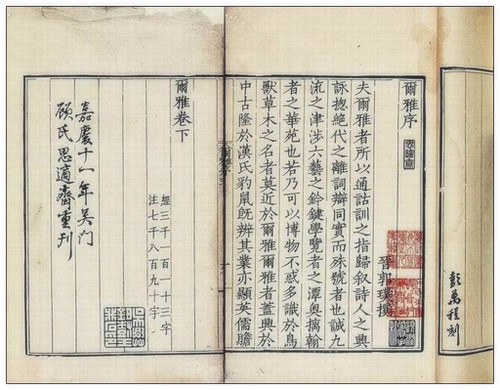 彭萬程刻
爾雅序
晉郭璞撰
夫爾雅者所以通詁訓之指歸叙詩人之興
詠揔絶代之離詞辯同實而殊號者也誠九
流之津涉六藝之鈐鍵學覽者之潭奥摛翰
者之華苑也若乃可以博物不惑多識於鳥
獸草木之名者莫近於爾雅爾雅者蓋興於
中古隆於漢氏豹鼠既辨其業亦顯英儒贍
爾雅卷下
經三千一百一十三字
注七千八百九十字
嘉慶十一年吳門
顧氏思適齋重刊